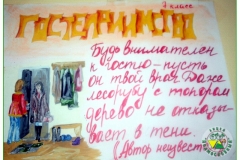 7 класс
ГОСТЕПРИИМСТВО
Будь внимателен
к гостю - пусть
он твой враг. Даже
лесорубу с топором
дерево не отказы-
вает в тени.
(Автор неизвестен